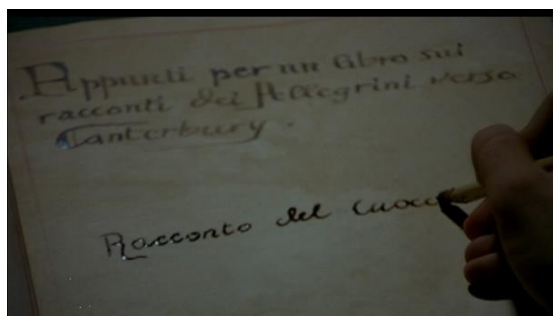 Appunti per un libro sui
racconti dei Pellegrini verso
Canterbury.
Racconto del cuoco